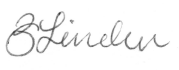 B Linden